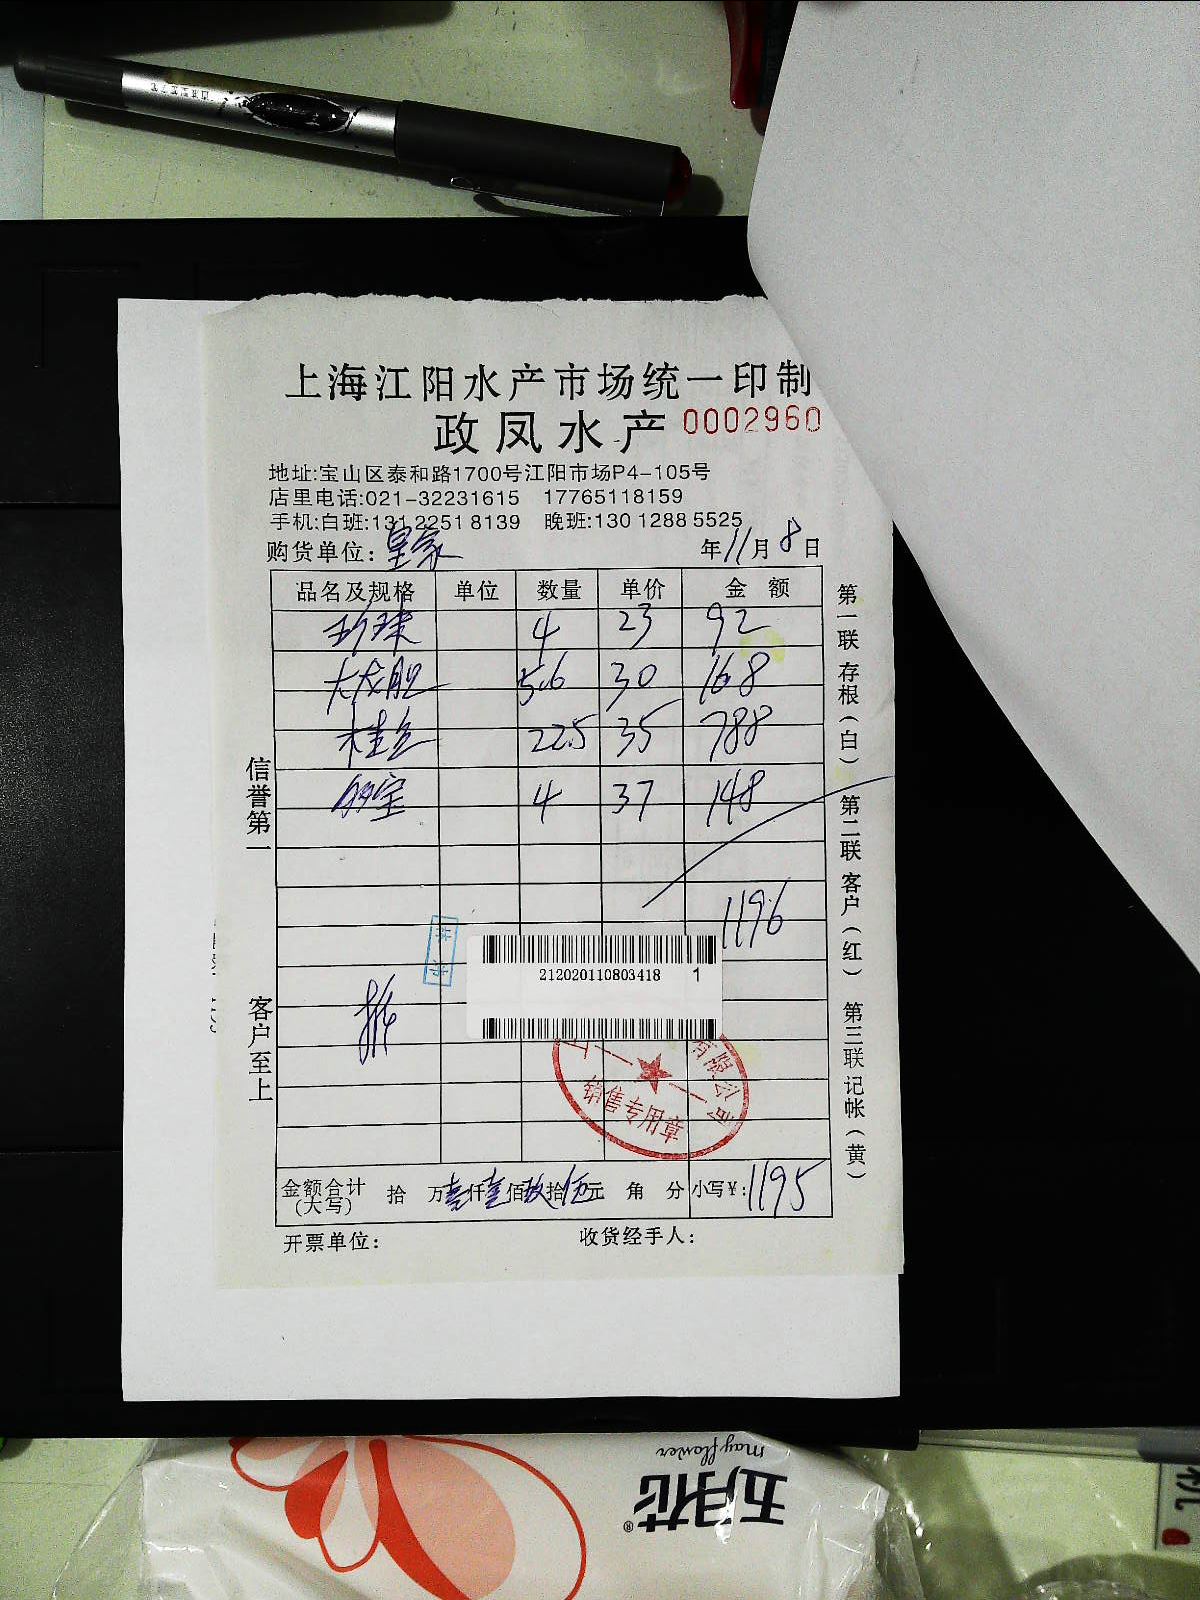 上海江阳水产市场统一印制
政凤水产 0002960
地址:宝山区泰和路1700号江阳市场P4-105号
店里电话:021-32231615 17765118159
手机:白班:131 2251 8139 晚班:130 1288 5525
购货单位: 皇家 年11月8日
品名及规格 单位 数量 单价 金额
珍珠 4 23 92
大龙胆 5.6 30 168
桂鱼 22.5 35 788
多宝 4 37 148
1196
212020110803418 1
有限公司
销售专用章
金额合计(大写) 拾 万壹仟壹佰玖拾伍元 角 分 小写¥: 1195
开票单位: 收货经手人:
信誉第一
客户至上
第一联 存根(白) 第二联 客户(红) 第三联 记帐(黄)
mayflower
五月花®